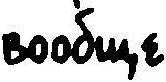 вообще